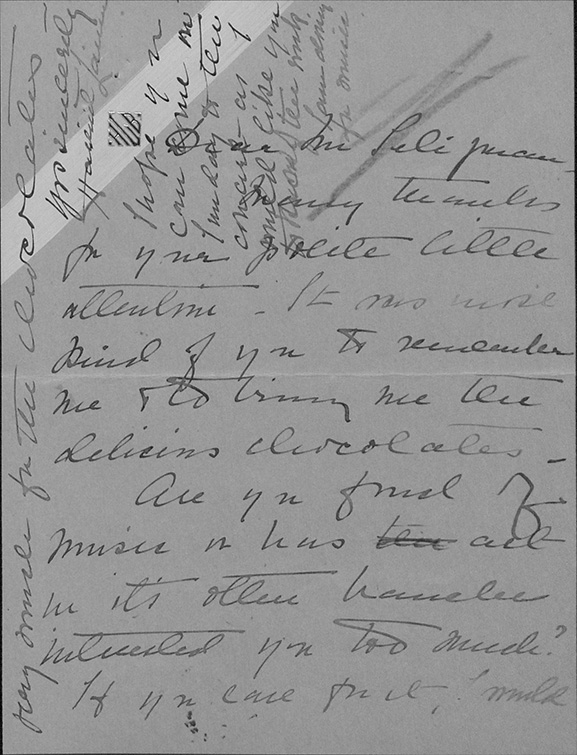 Dear Mr Seligman -
Many thanks
for your polite little
attention - It was most
kind of you to remember
me & to bring me the
delicious chocolates -
Are you fond of
music or has the art
in it's other branches
interested you too much?
If you care for it, I would
I hope you
can come on
Sunday to the
concert as
would like you
I am doing
for music.
yrs sincerely
Harriet
very much for the chocolates